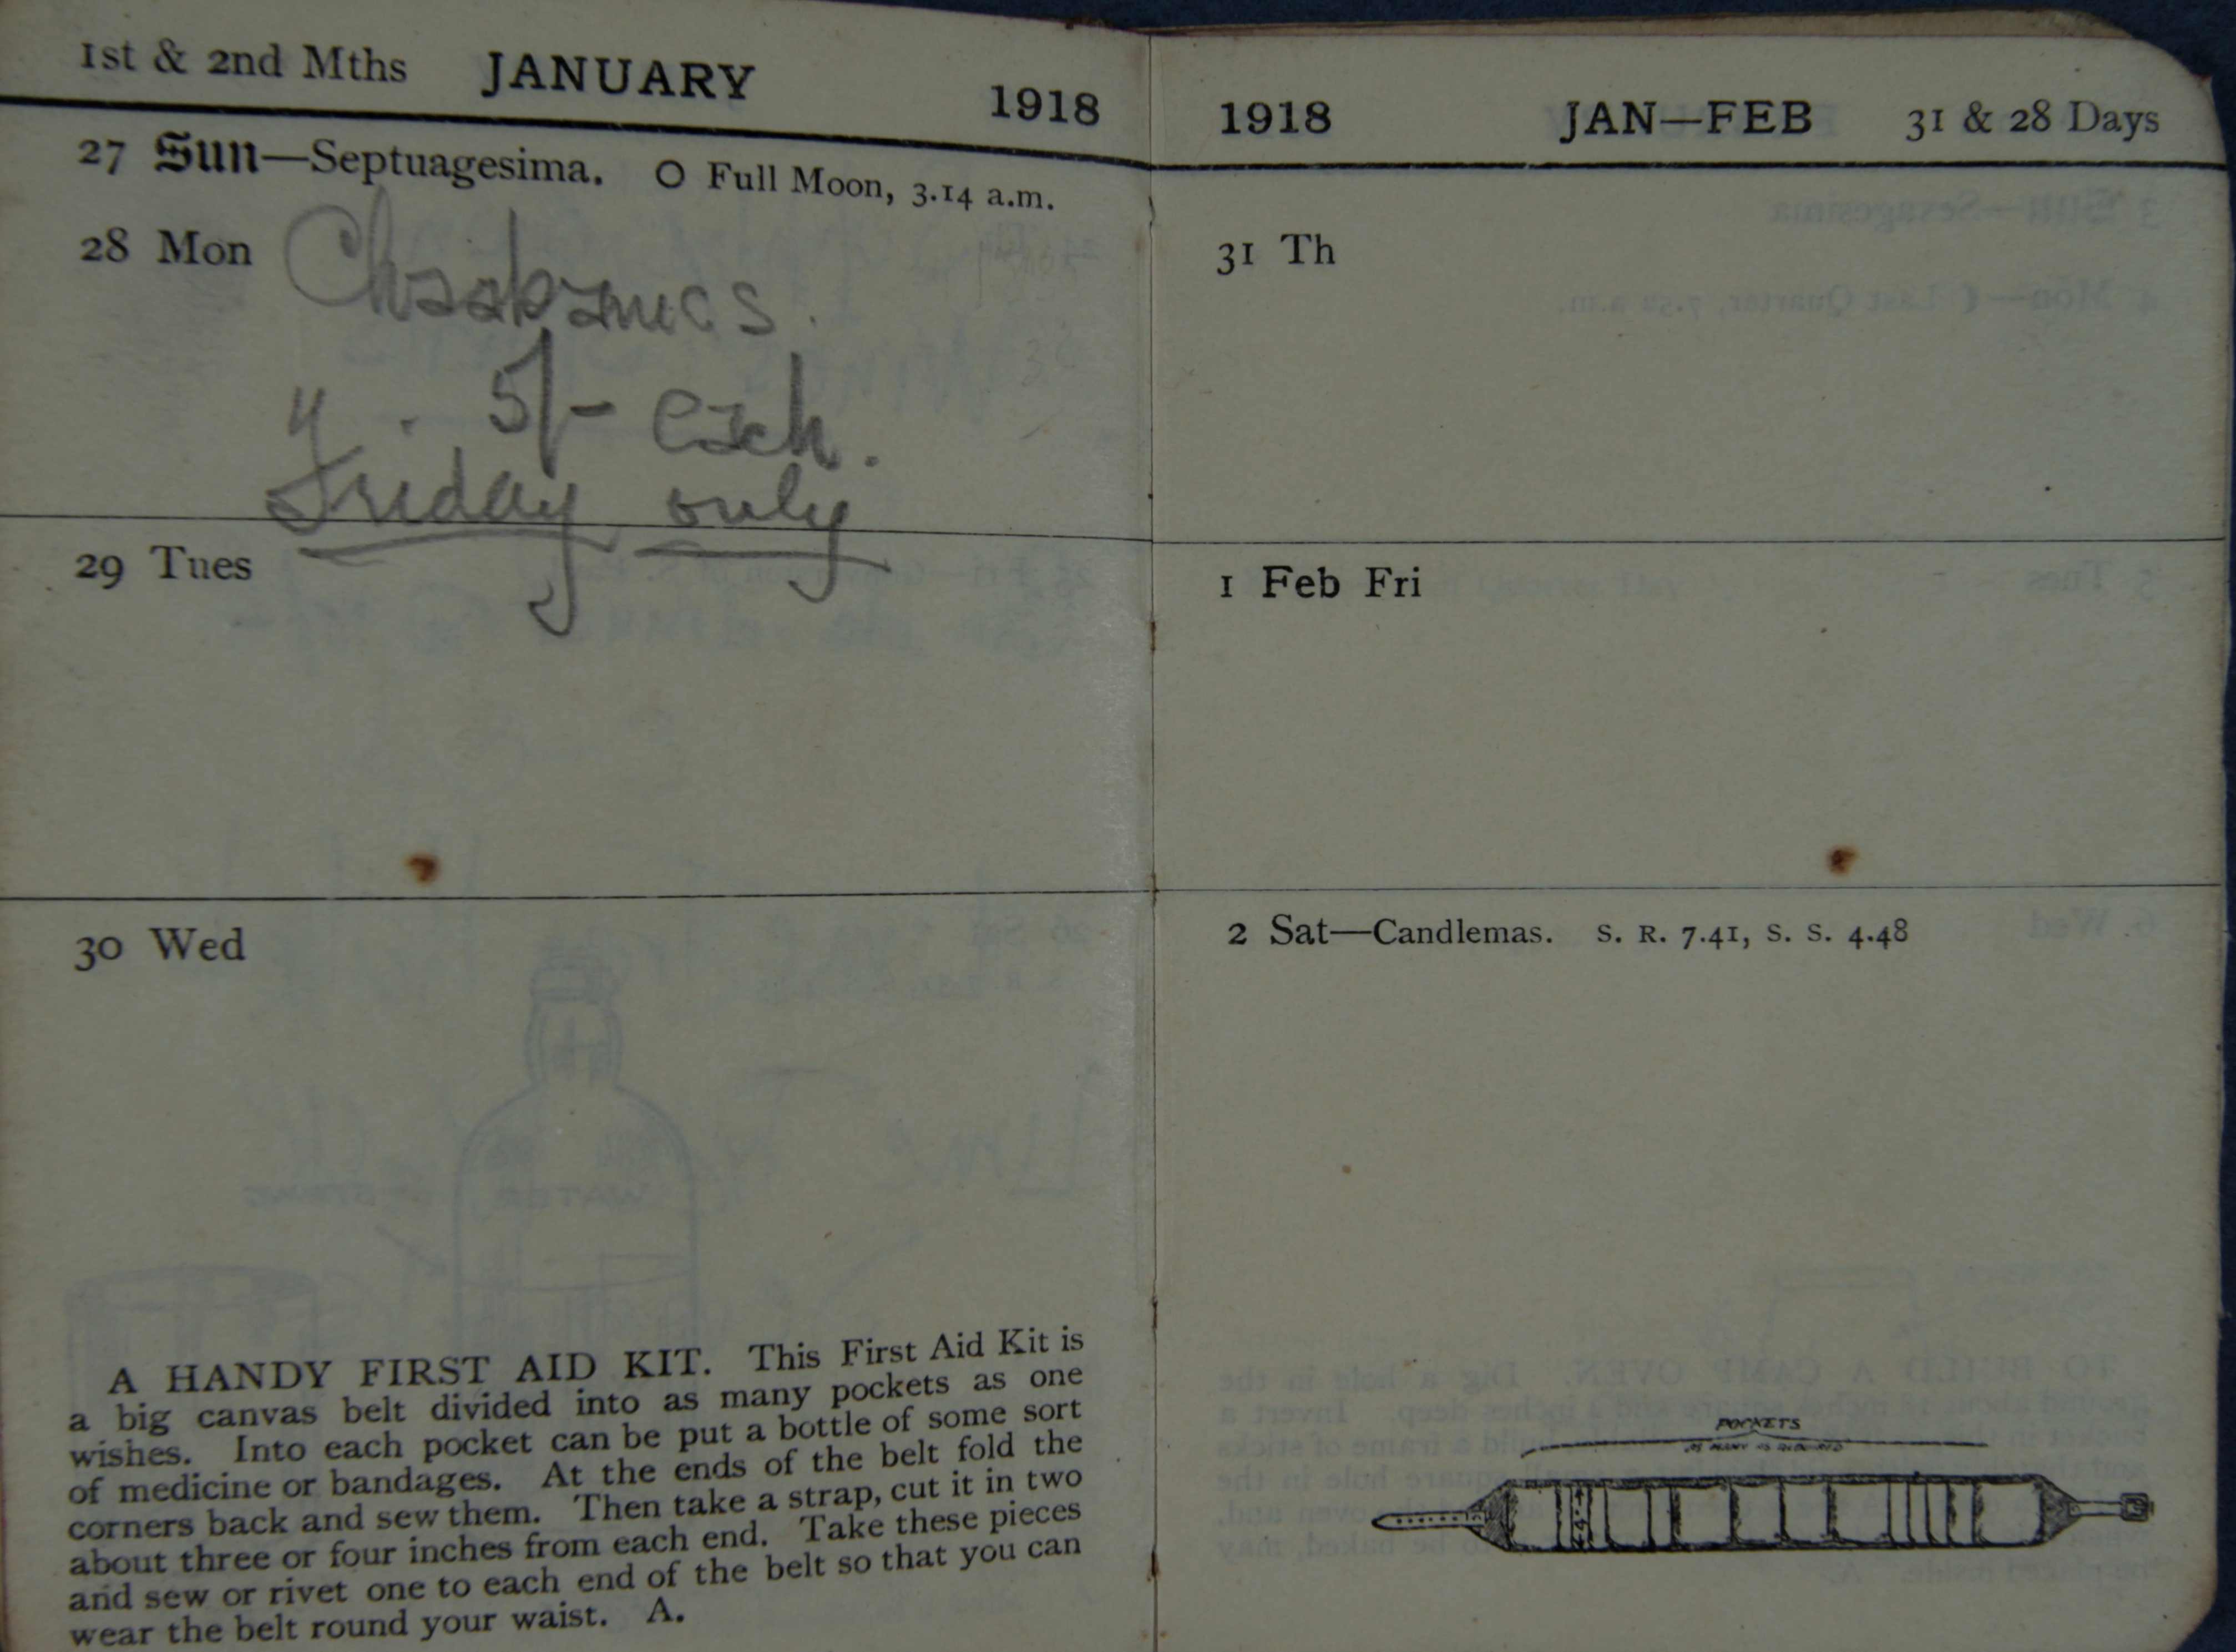 1st & 2nd Mths JANUARY 1918
27 Sun—Septuagesima. O Full Moon, 3.14 a.m.
28 Mon
5/- each.
Friday only
29 Tues
30 Wed
A HANDY FIRST AID KIT. This First Aid Kit is
a big canvas belt divided into as many pockets as one
wishes. Into each pocket can be put a bottle of some sort
of medicine or bandages. At the ends of the belt fold the
corners back and sew them. Then take a strap, cut it in two
about three or four inches from each end. Take these pieces
and sew or rivet one to each end of the belt so that you can
wear the belt round your waist. A.
1918 JAN—FEB 31 & 28 Days
31 Th
1 Feb Fri
2 Sat—Candlemas. S. R. 7.41, S. S. 4.48
POCKETS
AS MANY AS REQUIRED